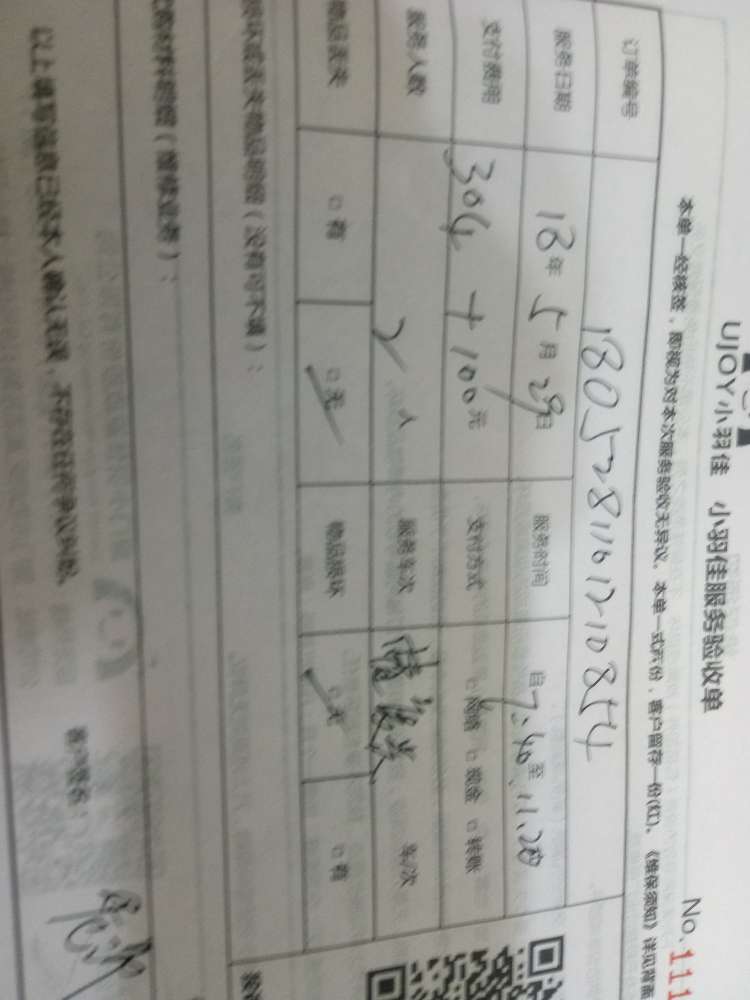 No.111
UJOY小羽佳 小羽佳服务验收单
本单一经核签，即视为对本次服务验收无异议。本单一式两份，客户留存一份(红)。《维保须知》详见背面
订单编号 180528116121 0854
服务日期 18年5月29日 服务时间 自7:40至11:20
支付费用 304+100元 支付方式 □网络 □现金 □转账
服务人数 2人 服务车次 车/次
物品丢失 □有 □无 物品损坏 □无 □有
损坏或丢失物品明细（没有可不填）：
（维修业务）：
以上填写信息已经本人确认无误，不存在任何争议纠纷。 客户签名：